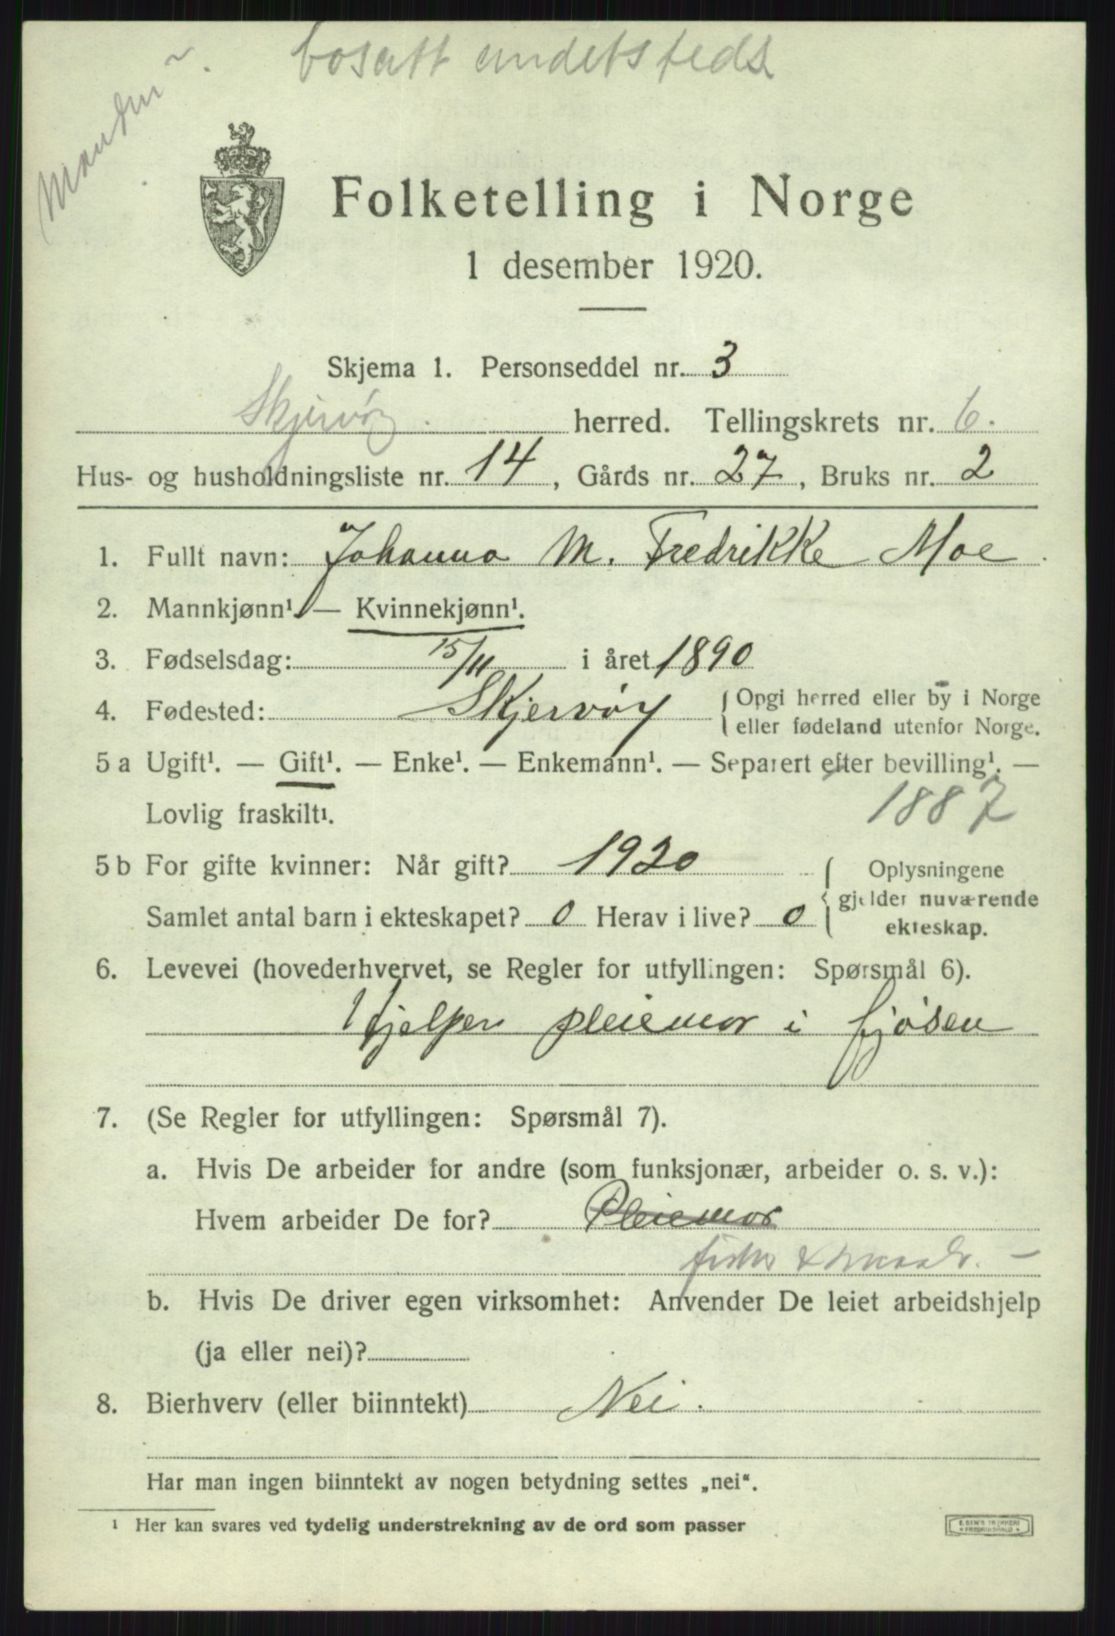 Manden bosatt andetsteds
Folketelling i Norge
1 desember 1920.
Skjema 1. Personseddel nr. 3
Skjervøy. herred. Tellingskrets nr. 6.
Hus- og husholdningsliste nr. 14, Gårds nr. 27, Bruks nr. 2
1. Fullt navn: Johanna M. Fredrikke Moe.
2. Mannkjønn¹. — Kvinnekjønn¹.
3. Fødselsdag: 15/11 i året 1890
4. Fødested: Skjervøy {Opgi herred eller by i Norge
eller fødeland utenfor Norge.
5 a Ugift¹. — Gift¹. — Enke¹. — Enkemann¹. — Separert efter bevilling¹. —
Lovlig fraskilt¹. 1887
5 b For gifte kvinner: Når gift? 1920 { Oplysningene
gjelder nuværende
Samlet antal barn i ekteskapet? 0 Herav i live? 0
ekteskap.
6. Levevei (hovederhvervet, se Regler for utfyllingen: Spørsmål 6).
Hjelper pleiemor i fjøsen
7. (Se Regler for utfyllingen: Spørsmål 7).
a. Hvis De arbeider for andre (som funksjonær, arbeider o. s. v.):
Hvem arbeider De for? Pleiemor
b. Hvis De driver egen virksomhet: Anvender De leiet arbeidshjelp
(ja eller nei)?
8. Bierhverv (eller biinntekt) Nei.
Har man ingen biinntekt av nogen betydning settes „nei“.
¹ Her kan svares ved tydelig understrekning av de ord som passer